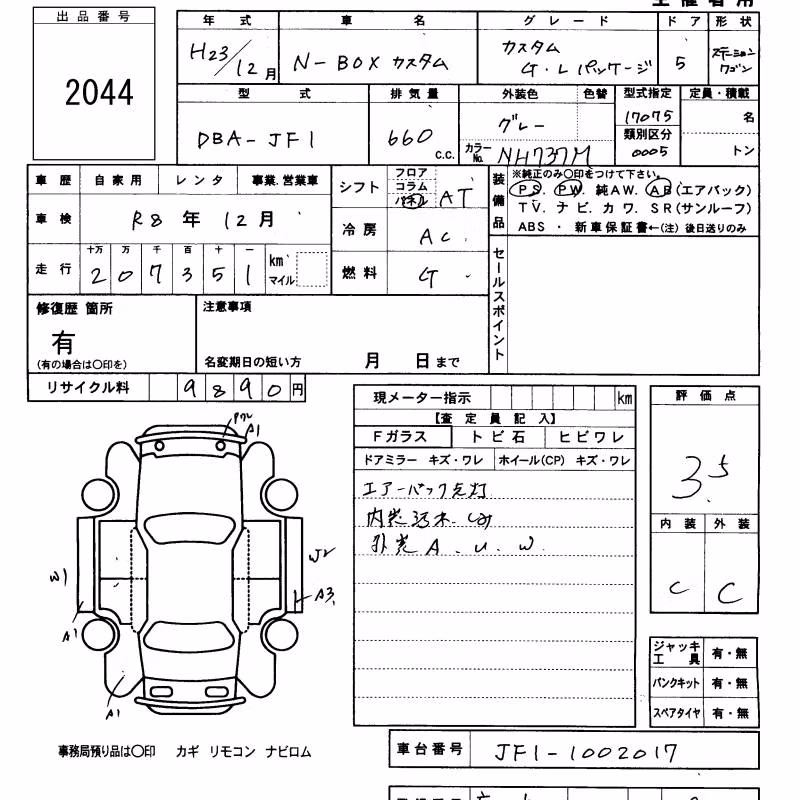 出品番号
2044
年式 車名 グレード ドア 形状
H23/12月 N-BOX カスタム カスタム G・Lパッケージ 5 ステーションワゴン
型式 排気量 外装色 色替 型式指定 定員・積載
DBA-JF1 660 c.c. グレー 17075 名
カラーNo. NH737M 類別区分 0005 トン
車歴 自家用 レンタ 事業.営業車
車検 R8年12月
走行 十万 万 千 百 十 一
207351 km マイル
シフト フロア コラム パネル AT
冷房 AC
燃料 G
装備品
※純正のみ〇印をつけて下さい。
PS. PW. 純AW. AB(エアバック)
TV. ナビ. カワ. SR(サンルーフ)
ABS・新車保証書←(注)後日送りのみ
セールスポイント
修復歴 箇所
有
(有の場合は〇印を)
注意事項
名変期日の短い方 月 日まで
リサイクル料 9890円
現メーター指示 km
【査定員記入】
Fガラス トビ石 ヒビワレ
ドアミラー キズ・ワレ ホイール(CP) キズ・ワレ
エアーバック点灯
内装汚れ.
外装 A.U.W
評価点
3.5
内装 外装
C C
A1
W1
A1
A1
A3
ジャッキ工具 有・無
パンクキット 有・無
スペアタイヤ 有・無
事務局預り品は〇印 カギ リモコン ナビロム
車台番号 JF1-1002017